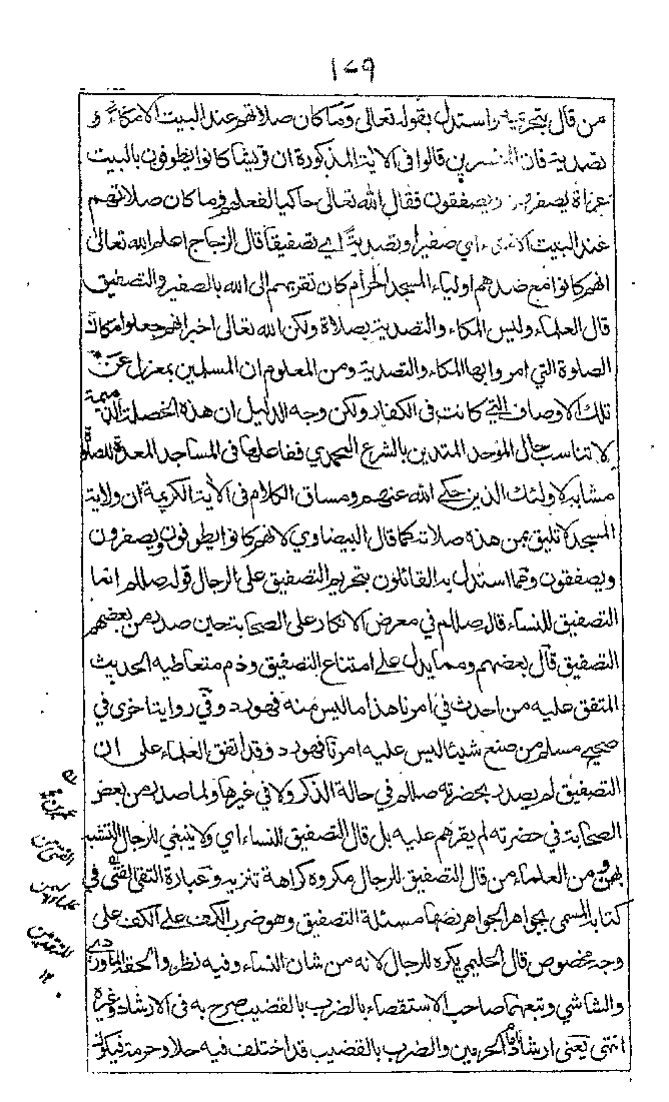 ١٧٩
من قال بتحريمه واستدل بقوله تعالى وما كان صلاتهم عند البيت الا مكاءً و
تصدية فان المفسرين قالوا فى الاية المذكورة ان قريشا كانوا يطوفون بالبيت
عراة يصفرون ويصفقون فقال الله تعالى حاكيا لفعلهم وما كان صلاتهم
عند البيت الا مكاء اي صفيرا وتصديةً اي تصفيقا قال الزجاج اعلم الله تعالى
انهم كانوا مع صدهم اولياء المسجد الحرام كان تقربهم الى الله بالصفير والتصفيق
قال العلماء وليس المكاء والتصدية بصلاة ولكن الله تعالى اخبر انهم جعلوا مكان
الصلوة التي امروا بها المكاء والتصدية ومن المعلوم ان المسلمين بمعزل عن
تلك الاوصاف التي كانت فى الكفار ولكن وجه الدليل ان هذه الخصلة الذميمة
لا تناسب حال الموحد المتدين بالشرع المحمدي ففاعلها فى المساجد المعدة للصلوة
مشابه لاولئك الذين حكى الله عنهم ومساق الكلام فى الاية الكريمة ان ولاية
المسجد لا تليق بمن هذه صلاته كما قال البيضاوي لانهم كانوا يطوفون ويصفرون
ويصفقون ومما استدل به القائلون بتحريم التصفيق على الرجال قوله صللم انما
التصفيق للنساء قاله صللم في معرض الانكار على الصحابة حين صدر من بعضهم
التصفيق قال بعضهم ومما يدل على امتناع التصفيق وذم متعاطيه الحديث
المتفق عليه من احدث في امرنا هذا ما ليس منه فهو رد وفي رواية اخرى في
صحيح مسلم من صنع شيئا ليس عليه امرنا فهو رد وقد اتفق العلماء على ان
التصفيق لم يصدر بحضرته صللم في حالة الذكر ولا في غيرها ولما صدر من بعض
الصحابة في حضرته لم يقرهم عليه بل قال التصفيق للنساء اي ولا ينبغي للرجال التشبه
بهن ومن العلماء من قال التصفيق للرجال مكروه كراهة تنزيه وعبارة التقي الفتى في
كتابه المسمى بجواهر الجواهر نصها مسئلة التصفيق وهو ضرب الكف على الكف على
وجه مخصوص قال الحليمي يكره للرجال لانه من شان النساء وفيه نظر والحقه الماوردي
والشاشي وتبعهما صاحب الاستقصاء بالضرب بالقضيب صرح به فى الارشاد وغيره
انتهى يعنى ارشاد امام الحرمين والضرب بالقضيب قد اختلف فيه حلا وحرمة فيكون